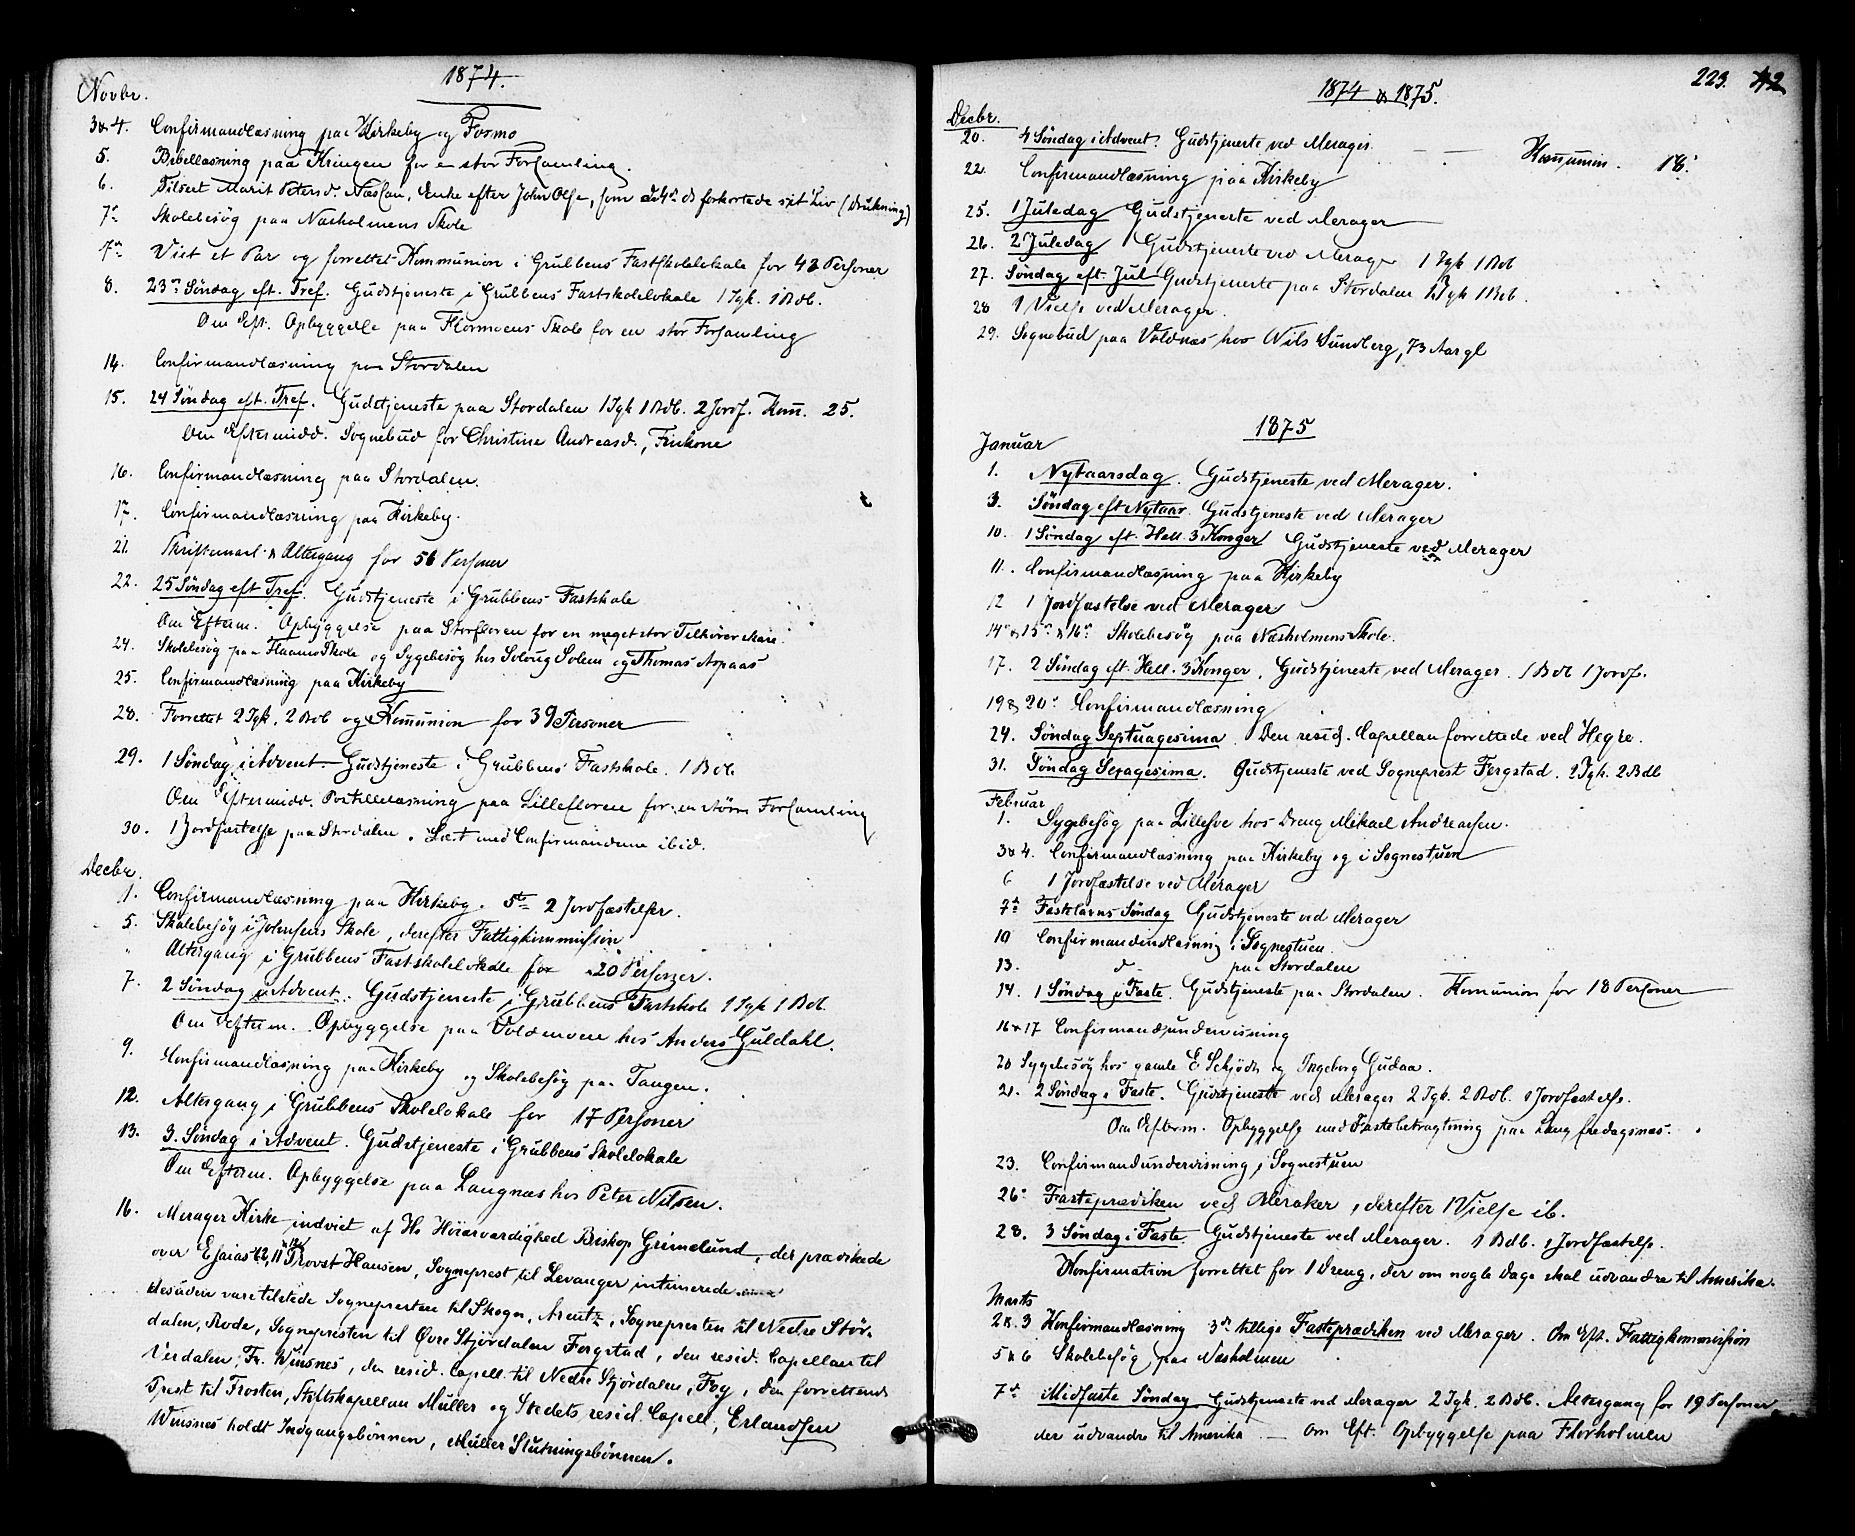 1874.
Novbr.
3 & 4. Confirmandlæsning paa Kirkeby og Formo
5. Bibellæsning paa Kringen for en stor Forsamling.
6. Tilseet Marit Petersd. Næslan, Enke efter John Olss., som d. 4de ds forkortede sit Liv (Drukning)
7de Skolebesög paa Næsholmens Skole
7de Viet et Par og forrettet Kommunion i Grubbens Fastskolelokale for 43 Personer
8. 23de Söndag eft. Tref. Gudstjeneste i Grubbens Fastskolelokale 1 Igk. 1 Bdb.
Om Eft. Opbyggelse paa Flormoens Skole for en stor Forsamling
14. Confirmandlæsning paa Stordalen
15. 24 Söndag eft. Tref. Gudstjeneste paa Stordalen 1 Igk 1 Bdb. 2 Jordf. Kom. 25.
Om Eftermidd. Sognebud for Christine Andreasd.,
16. Confirmandlæsning paa Stordalen.
17. Confirmandlæsning paa Kirkeby.
21. Skriftemaal & Altergang for 56 Personer
22. 25 Söndag eft Tref. Gudstjeneste i Grubbens Fastskole
Om Efterm. Opbyggelse paa Storfloren for en meget stor Tilhörerskare.
24. Skolebesög paa Skole og Sygebesög hos Solvug Solem og Thomas Aspaas
25. Confirmandlæsning paa Kirkeby
28. Forrettet 2 Igk, 2 Bdb og Kommunion for 39 Personer
29. 1 Söndag i Advent Gudstjeneste i Grubbens Fastskole. 1 Bdb
Om Eftermidd. Postillelæsning paa Lillefloren for en större Forsamling
30. 1 Jordfæstelse paa Stordalen. Læst med Confirmanderne ibid.
Decbr.
1. Confirmandlæsning paa Kirkeby. 5te 2 Jordfæstelser.
5. Skolebesög i Johnsens Skole, derefter Fattigkommission
" Altergang i Grubbens Fastskolelokale for 20 Personer.
7. 2 Söndag i Advent. Gudstjeneste i Grubbens Fastskole 1 Igk 1 Bdb.
Om Efterm. Opbyggelse paa Voldmoen hos Anders Guldahl.
9. Confirmandlæsning paa Kirkeby og Skolebesög paa Tangen.
12. Altergang i Grubbens Skolelokale for 17 Personer
13. 3. Söndag i Advent. Gudstjeneste i Grubbens Skolelokale
Om Efterm. Opbyggelse paa Langnæs hos Peter Nilsen.
16. Merager Kirke indviet af Hs Höiærværdighed Biskop Grimelund, der prædikede
over Esaias 12, 11 & 12 Provst Hansen, Sogneprest til Levanger intimerede
desuden vare tilstede Sognepresten til Skogn, Arentz, Sognepresten til Nedre Stör-
dalen, Rode, Sognepresten til Övre Stjördalen Fergstad, den resid. Capellan til
Verdalen, Fr. Winsnes, den resid. Capell. til Nedre Stjördalen, Fog, den forrettende
Prest til Frosten, Stiftskapellan Müller og Stedets resid. Capell, Erlandsen
Winsnes holdt Indgangsbönnen, Müller Slutningsbönnen.
1874 & 1875.
223. 42
Decbr.
20. 4 Söndag i Advent. Gudstjeneste ved Merager. — — Kommunion. 18.
22. Confirmandlæsning paa Kirkeby
25. 1 Juledag Gudstjeneste ved Merager
26. 2 Juledag Gudstjeneste ved Merager 1 Igk 1 Bdb
27. Söndag eft. Jul Gudstjeneste paa Stordalen 1 Igk 1 Bdb.
28 1 Vielse ved Merager.
29. Sognebud paa Voldnæs hos Nils Sundberg, 73 Aar gl
1875
Januar
1. Nytaarsdag. Gudstjeneste ved Merager.
3. Söndag eft Nytaar. Gudstjeneste ved Merager
10. 1 Söndag eft. Hell. 3 Konger Gudstjeneste ved Merager
11. Confirmandlæsning paa Kirkeby
12 1 Jordfæstelse ved Merager
14de & 15de & 16de Skolebesög paa Næsholmens Skole.
17. 2 Söndag eft. Hell. 3 Konger. Gudstjeneste ved Merager. 1 Bdb 1 Jordf.
19 & 20. Confirmandlæsning
24. Söndag Septuagesima. Den resid. Capellan forrettede ved Hegre.
31. Söndag Sexagesima. Gudstjeneste ved Sogneprest Fergstad. 2 Igk. 2 Bdb
Februar
1. Sygebesög paa hos Dreng Mikael Andreassen.
3 & 4. Confirmandlæsning paa Kirkeby og i Sognestuen
6 1 Jordfæstelse ved Merager
7de Fastelavns Söndag Gudstjeneste ved Merager
10 Confirmandlæsning i Sognestuen
13. do paa Stordalen
14. 1 Söndag i Faste. Gudstjeneste paa Stordalen. Komunion for 18 Personer
16 & 17 Confirmandundervisning
20 Sygebesög hos gamle E Schjödt og Ingeborg Gudaa.
21. 2 Söndag i Faste. Gudstjeneste ved Merager 2 Igk. 2 Bdb. 1 Jordfæstelse.
Om Efterm. Opbyggelse med Fastebetragtning paa Lang fredagsnæs.
23. Confirmandundervisning i Sognestuen
26. Fasteprædiken ved Meraker, derefter 1 Vielse ib.
28. 3 Söndag i Faste. Gudstjeneste ved Merager. 1 Bdb. 1 Jordfæstelse.
Konfirmation forrettet for 1 Dreng, der om nogle Dage skal udvandre til Amerika.
Marts
2 & 3 Konfirmandlæsning 3de tillige Fasteprædiken ved Merager. Om Eft. Fattigkommission
5 & 6 Skolebesög paa Næsholmen
7de Midfaste Söndag Gudstjeneste ved Merager 2 Igk. 2 Bdb. Altergang for 19 Personer
der udvandre til Amerika — Om Eft. Opbyggelse paa Florholmen